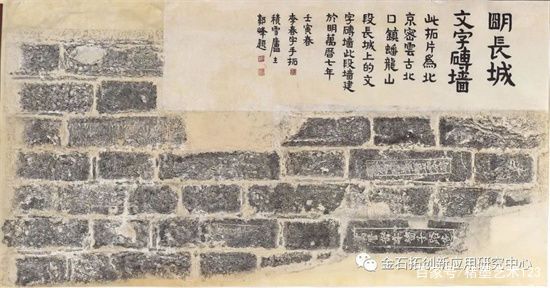 朙長城
文字磚墙
此拓片爲北
京密雲古北
口鎮蟠龍山
段長城上的文
字磚墙此段墙建
於明萬曆七年
壬寅春
李春宇手拓
積雪廬主
郭峰題
金石拓创新应用研究中心
百家号/楮墨艺术123